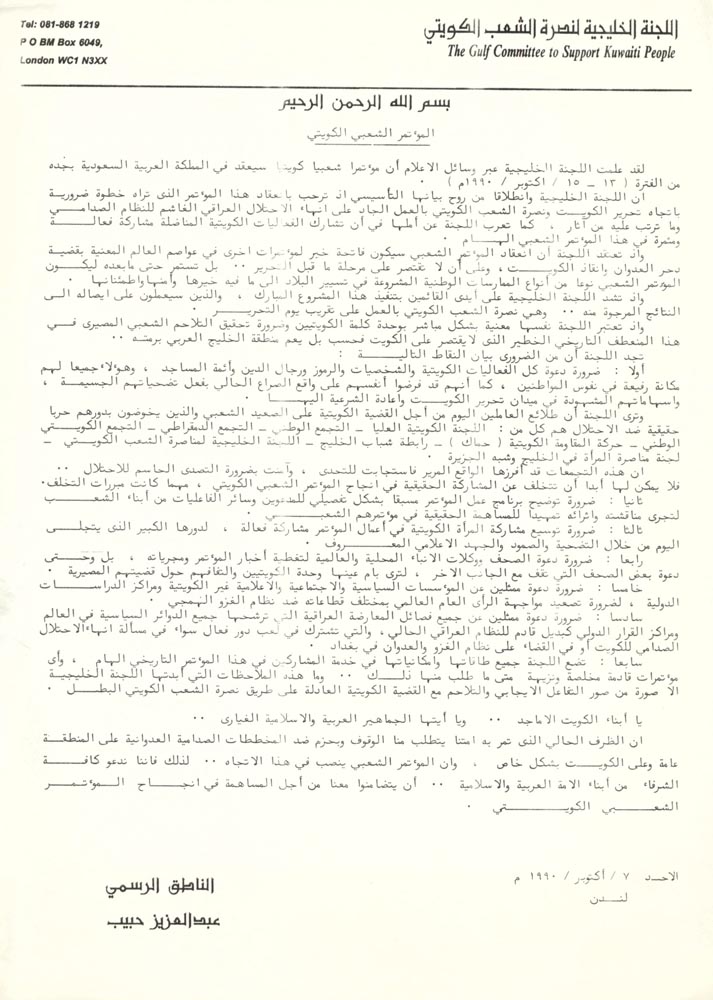 Tel: 081-868 1219
P O BM Box 6049,
London WC1 N3XX
اللجنة الخليجية لنصرة الشعب الكويتي
The Gulf Committee to Support Kuwaiti People
بسم الله الرحمن الرحيم
المؤتمر الشعبي الكويتي
لقد علمت اللجنة الخليجية عبر وسائل الاعلام أن مؤتمرا شعبيا كويتيا سيعقد في المملكة العربية السعودية بجده
من الفترة ( ١٣ - ١٥ / اكتوبر / ١٩٩٠م ) .
ان اللجنة الخليجية وانطلاقا من روح بيانها التأسيسي اذ ترحب بانعقاد هذا المؤتمر الذى تراه خطوة ضرورية
باتجاه تحرير الكويت ونصرة الشعب الكويتي بالعمل الجاد على انهاء الاحتلال العراقي الغاشم للنظام الصدامي
وما ترتب عليه من آثار ، كما تعرب اللجنة عن أملها في أن تشارك الفعاليات الكويتية المناضلة مشاركة فعالة
ومثمرة في هذا المؤتمر الشعبي الهام .
واذ تعتقد اللجنة أن انعقاد المؤتمر الشعبي سيكون فاتحة خير لمؤتمرات اخرى في عواصم العالم المعنية بقضية
دحر العدوان وانقاذ الكويت ، وعلى أن لا تقتصر على مرحلة ما قبل التحرير .. بل تستمر حتى مابعده ليكون
المؤتمر الشعبي نوعا من أنواع الممارسات الوطنية المشروعة في تسيير البلاد الى ما فيه خيرها وأمنها واطمئنانها .
واذ تشد اللجنة الخليجية على أيدى القائمين بتنفيذ هذا المشروع المبارك ، والذين سيعملون على ايصاله الى
النتائج المرجوة منه .. وهي نصرة الشعب الكويتي بالعمل على تقريب يوم التحرير .
واذ تعتبر اللجنة نفسها معنية بشكل مباشر بوحدة كلمة الكويتيين وضرورة تحقيق التلاحم الشعبي المصيرى في
هذا المنعطف التاريخي الخطير الذى لايقتصر على الكويت فحسب بل يعم منطقة الخليج العربي برمته ..
تجد اللجنة أن من الضرورى بيان النقاط التالية :
أولا : ضرورة دعوة كل الفعاليات الكويتية والشخصيات والرموز ورجال الدين وأئمة المساجد ، وهؤلاء جميعا لهم
مكانة رفيعة في نفوس المواطنين ، كما أنهم قد فرضوا أنفسهم على واقع الصراع الحالي بفعل تضحياتهم الجسيمة ،
واسهاماتهم المشهودة في ميدان تحرير الكويت واعادة الشرعية اليها .
وترى اللجنة أن طلائع العاملين اليوم من أجل القضية الكويتية على الصعيد الشعبي والذين يخوضون بدورهم حربا
حقيقية ضد الاحتلال هم كل من : اللجنة الكويتية العليا - التجمع الوطني - التجمع الدمقراطي - التجمع الكويتي
الوطني - حركة المقاومة الكويتية ( حماك ) - رابطة شباب الخليج - اللجنة الخليجية لمناصرة الشعب الكويتي -
لجنة مناصرة المرأة في الخليج وشبه الجزيرة .
ان هذه التجمعات قد أفرزها الواقع المرير فاستجابت للتحدى ، وآمنت بضرورة التصدى الحاسم للاحتلال ..
فلا يمكن لها أبدا أن تتخلف عن المشاركة الحقيقية في انجاح المؤتمر الشعبي الكويتي ، مهما كانت مبررات التخلف.
ثانيا : ضرورة توضيح برنامج عمل المؤتمر مسبقا بشكل تفصيلي للمدعوين وسائر الفاعليات من أبناء الشعب
لتجرى مناقشته واثرائه تمهيدا للمساهمة الحقيقية في مؤتمرهم الشعبي .
ثالثا : ضرورة توسيع مشاركة المرأة الكويتية في أعمال المؤتمر مشاركة فعالة ، لدورها الكبير الذى يتجلى
اليوم من خلال التضحية والصمود والجهد الاعلامي المعروف .
رابعا : ضرورة دعوة الصحف ووكلات الانباء المحلية والعالمية لتغطية أخبار المؤتمر ومجرياته ، بل وحتى
دعوة بعض الصحف التي تقف مع الجانب الاخر ، لترى بام عينها وحدة الكويتيين والتفافهم حول قضيتهم المصيرية .
خامسا : ضرورة دعوة ممثلين عن المؤسسات السياسية والاجتماعية والاعلامية غير الكويتية ومراكز الدراسات
الدولية ، لضرورة تصعيد مواجهة الرأى العام العالمي بمختلف قطاعاته ضد نظام الغزو الهمجي .
سادسا : ضرورة دعوة ممثلين عن جميع فصائل المعارضة العراقية التي ترشحها جميع الدوائر السياسية في العالم
ومراكز القرار الدولي كبديل قادم للنظام العراقي الحالي، والتي تشترك في لعب دور فعال سواء في مسألة انهاء الاحتلال
الصدامي للكويت أو في القضاء على نظام الغزو والعدوان في بغداد .
سابعا : تضع اللجنة جميع طاقاتها وامكانياتها في خدمة المشاركين في هذا المؤتمر التاريخي الهام ، وأى
مؤتمرات قادمة مخلصة ونزيهة متى ما طلب منها ذلك .. وما هذه الملاحظات التي أبدتها اللجنة الخليجية
الا صورة من صور التفاعل الايجابي والتلاحم مع القضية الكويتية العادلة على طريق نصرة الشعب الكويتي البطل .
يا أبناء الكويت الاماجد .. ويا أيتها الجماهير العربية والاسلامية الغيارى ..
ان الظرف الحالي الذى تمر به امتنا يتطلب منا الوقوف وبحزم ضد المخططات الصدامية العدوانية على المنطقة
عامة وعلى الكويت بشكل خاص ، وان المؤتمر الشعبي ينصب في هذا الاتجاه .. لذلك فاننا ندعو كافة
الشرفاء من أبناء الامة العربية والاسلامية .. أن يتضامنوا معنا من أجل المساهمة في انجاح المؤتمر
الشعبي الكويتي .
الاحد ٧ / أكتوبر / ١٩٩٠ م
لندن
الناطق الرسمي
عبدالعزيز حبيب